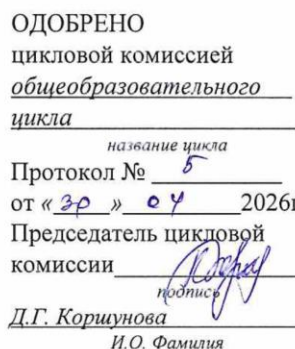 ОДОБРЕНО
цикловой комиссией
общеобразовательного
цикла
название цикла
Протокол № 5
от «30» 04 2026г
Председатель цикловой
комиссии
подпись
Д.Г. Коршунова
И.О. Фамилия